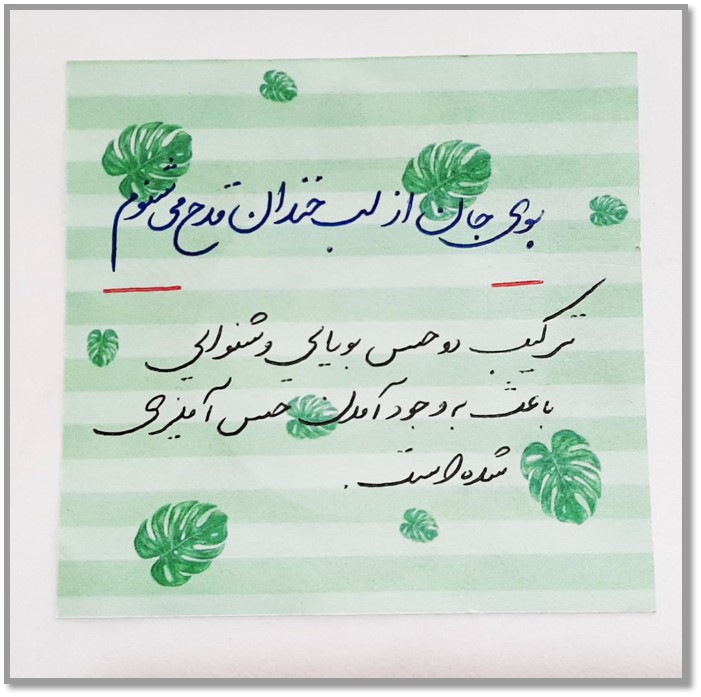 بوی جان از لب خندان قدح می شنوم
ترکیب دو حس بویایی و شنوایی
باعث به وجود آمدن حس آمیزی
شده است.